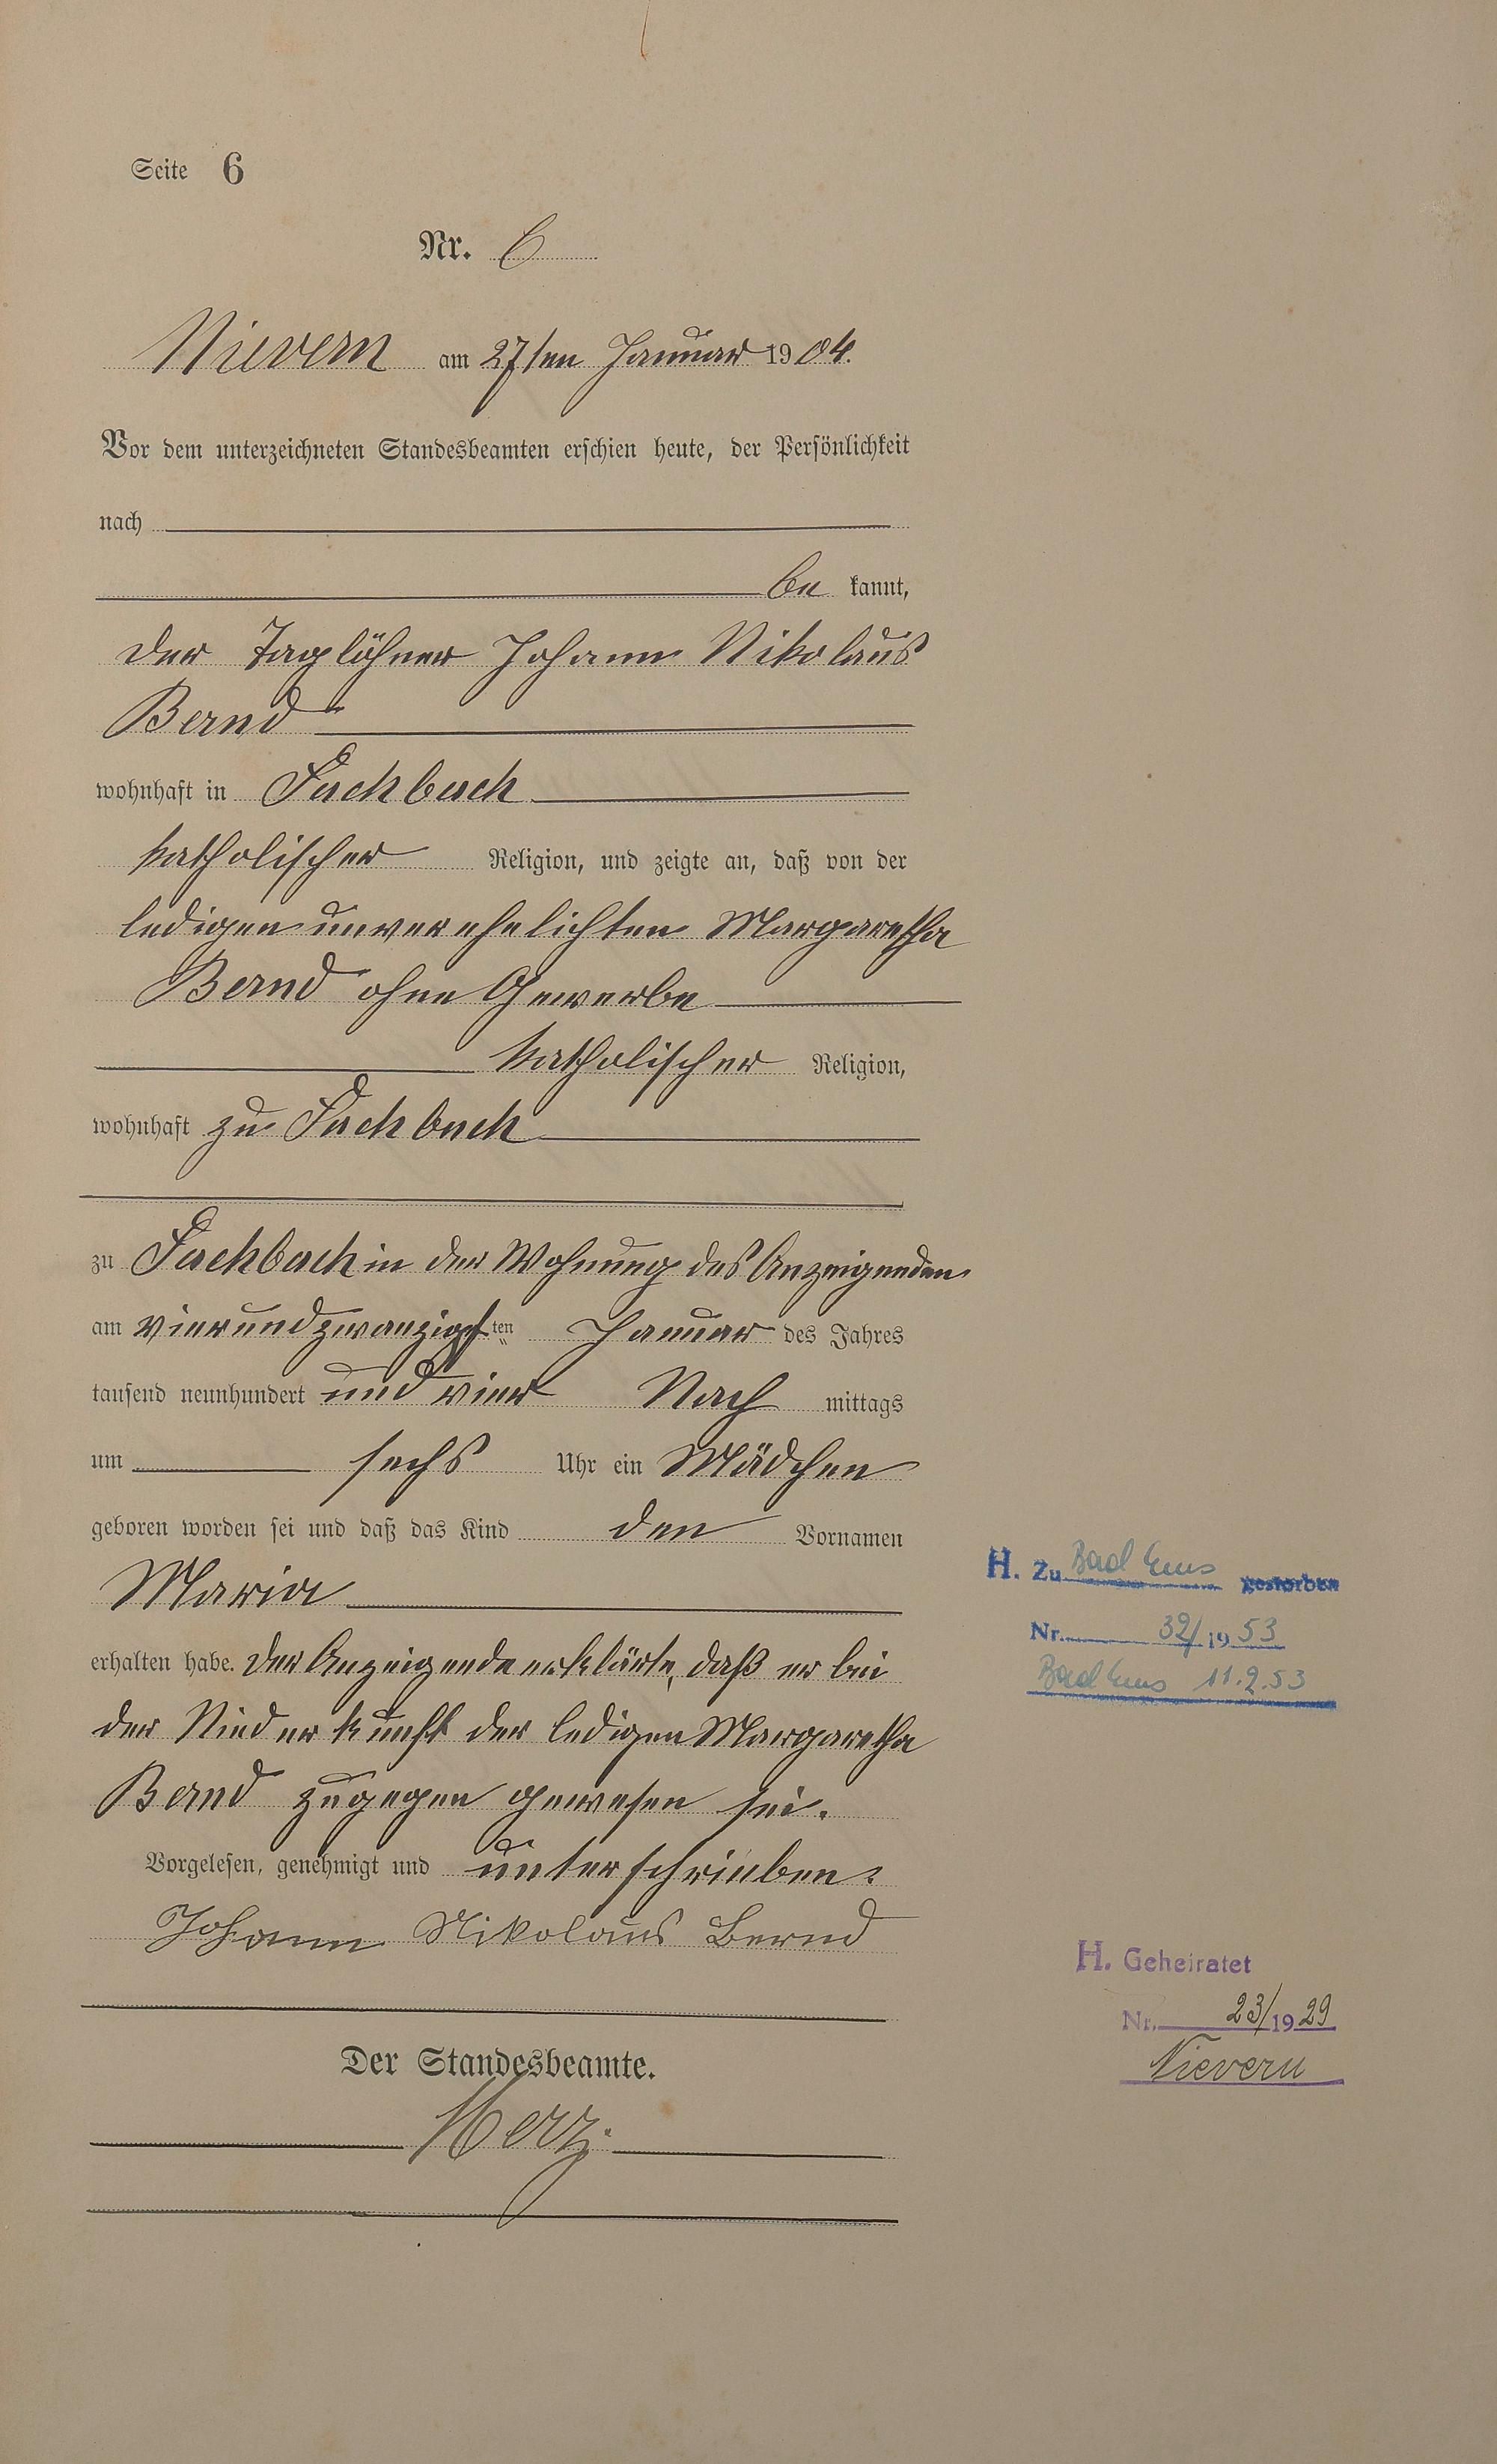 Seite 6
Nr. 6
Nievern am 27ten Januar 1904.
Vor dem unterzeichneten Standesbeamten erschien heute, der Persönlichkeit
nach
be kannt,
der Taglöhner Johann Nikolaus
Bernd
wohnhaft in Fachbach
katholischer Religion, und zeigte an, daß von der
ledigen unverehelichten Margaretha
Bernd ohne Gewerbe
katholischer Religion,
wohnhaft zu Fachbach
zu Fachbach in der Wohnung des Anzeigenden
am vierundzwanzigsten Januar des Jahres
tausend neunhundert und vier Nach mittags
um sechs Uhr ein Mädchen
geboren worden sei und daß das Kind den Vornamen
Maria
erhalten habe. Der Anzeigende erklärte, daß er bei
der Niederkunft der ledigen Margaretha
Bernd zugegen gewesen sei.
Vorgelesen, genehmigt und unterschrieben.
Johann Nikolaus Bernd
Der Standesbeamte.
Herz.
H. Zu Bad Ems gestorben
Nr. 32/1953
Bad Ems 11.2.53
H. Geheiratet
Nr. 23/1929
Nievern